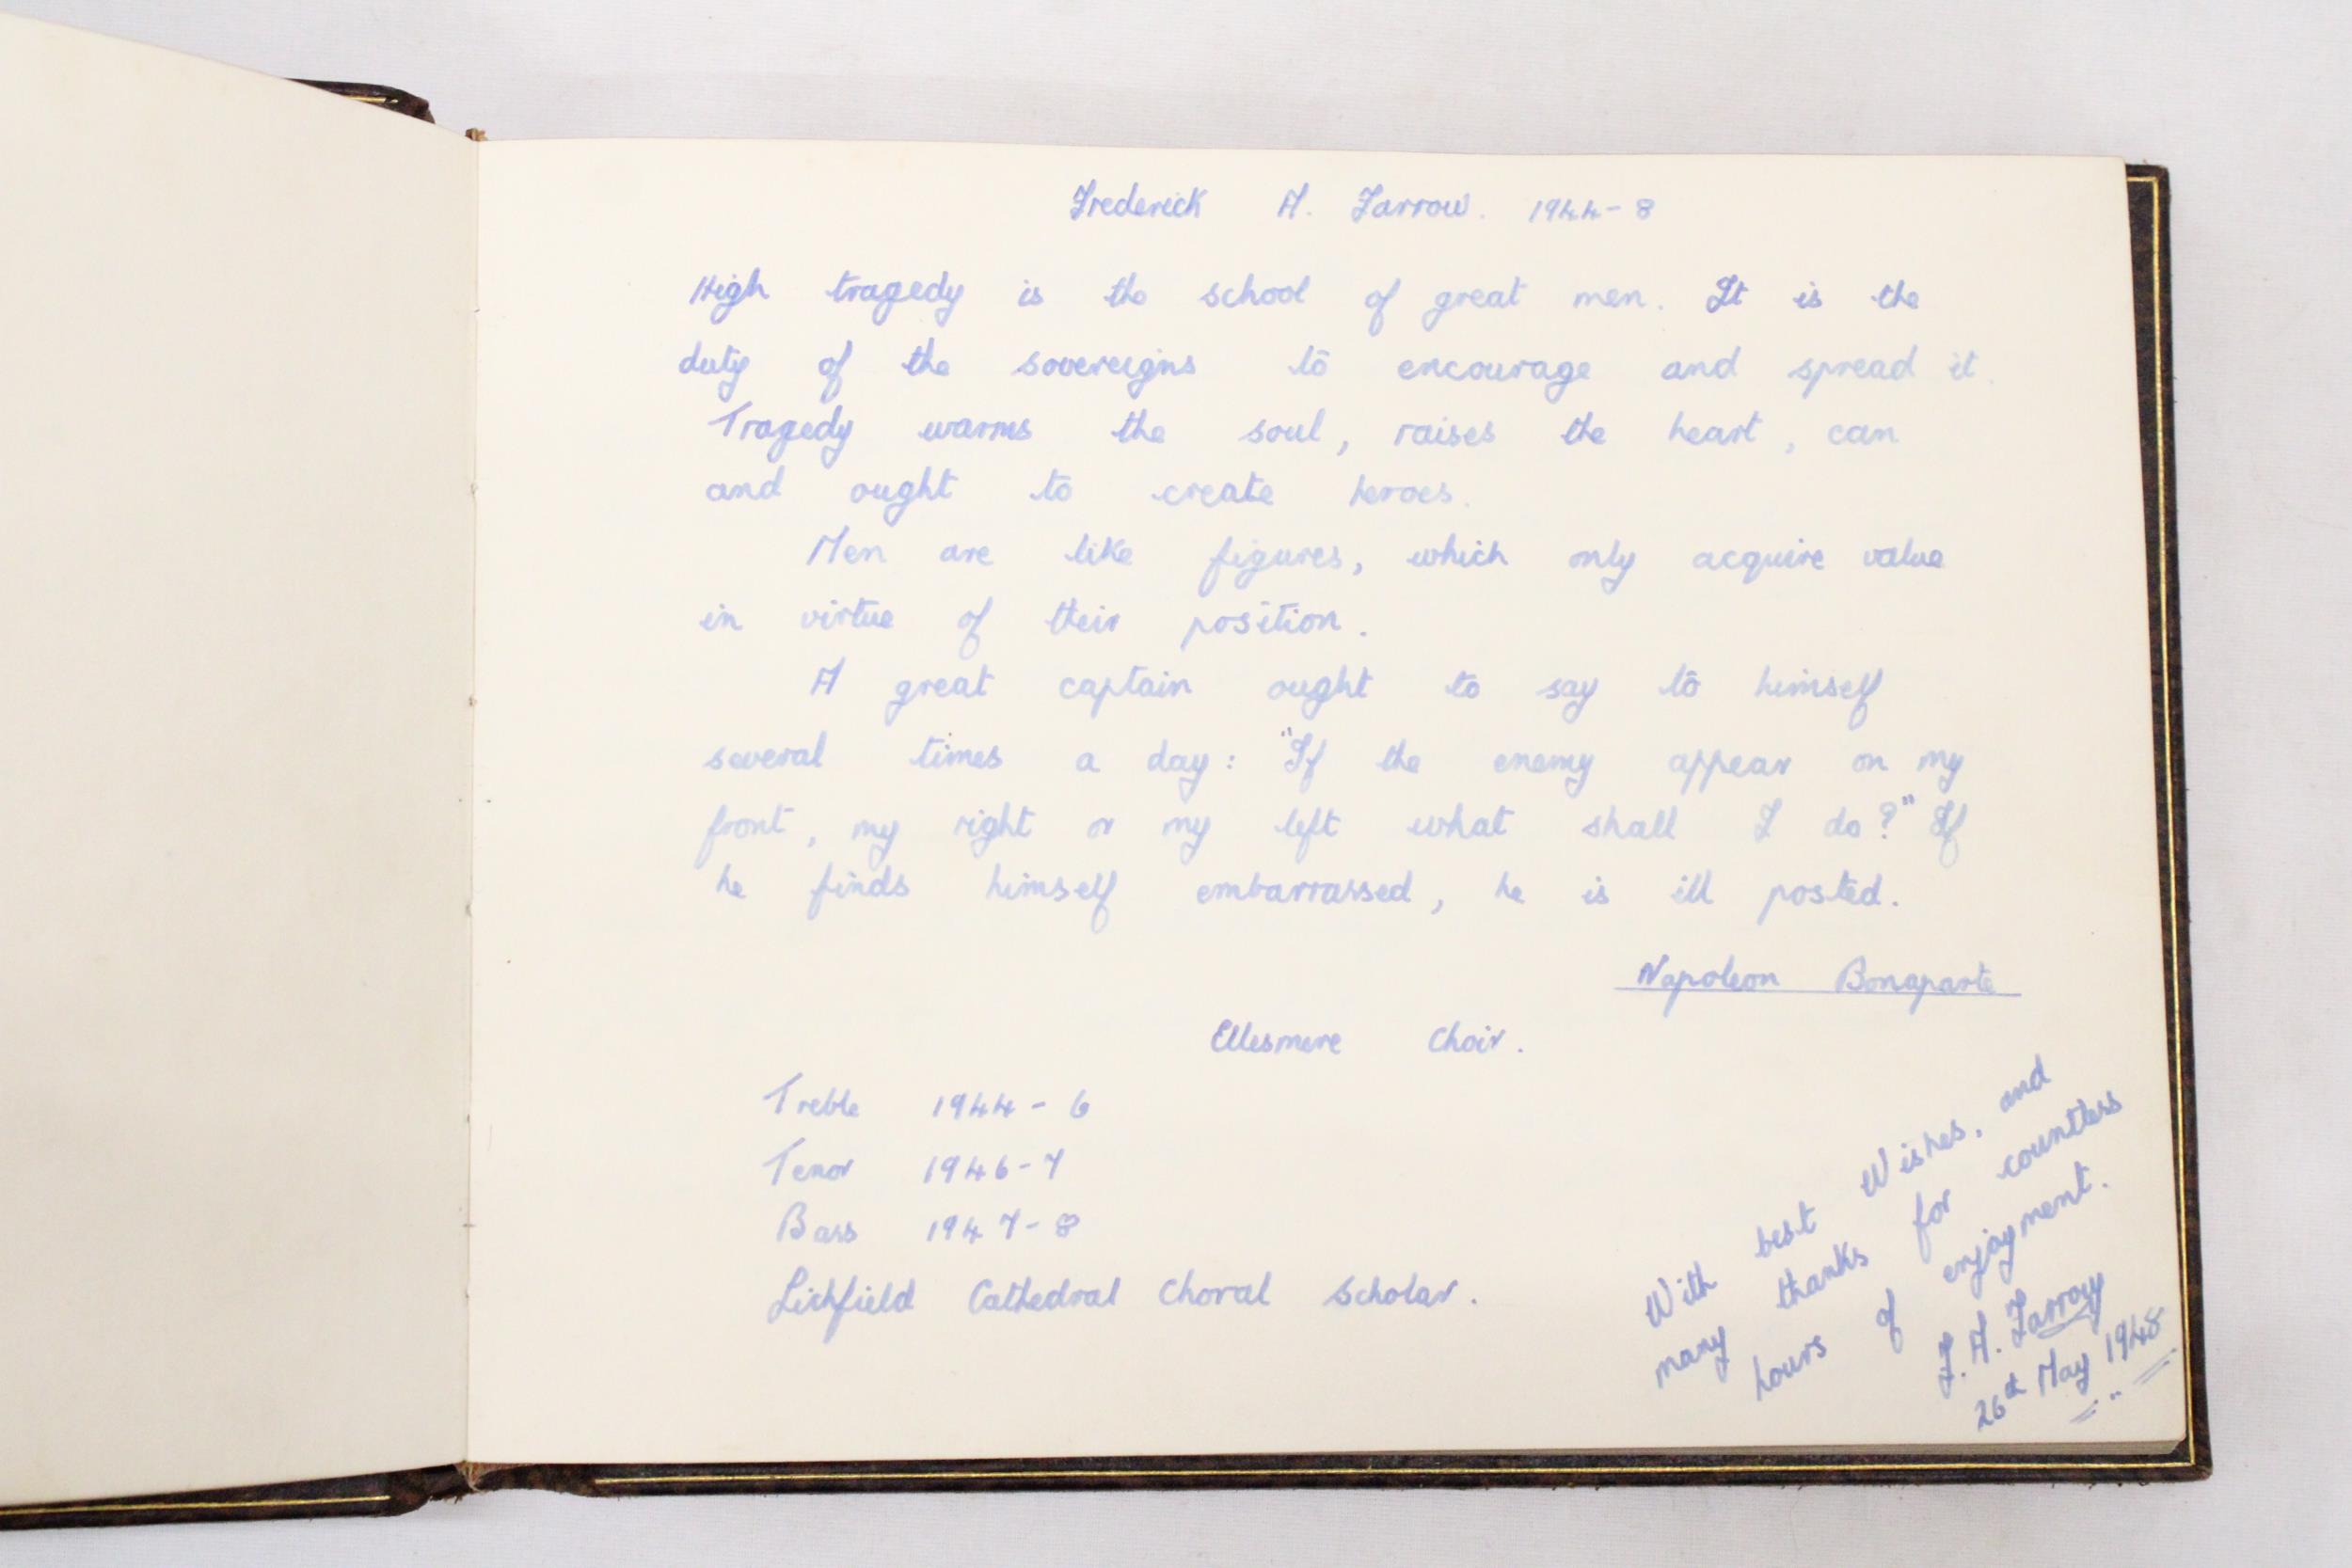 Frederick A. Farrow. 1944-8
High tragedy is the school of great men. It is the
duty of the sovereigns to encourage and spread it.
Tragedy warms the soul, raises the heart, can
and ought to create heroes.
Men are like figures, which only acquire value
in virtue of their position.
A great captain ought to say to himself
several times a day: "If the enemy appear on my
front, my right or my left what shall I do?" If
he finds himself embarrassed, he is ill posted.
Napoleon Bonaparte
Ellesmere Choir.
Treble 1944-6
Tenor 1946-7
Bass 1947-8
Lichfield Cathedral Choral Scholar.
With best Wishes, and
many thanks for countless
hours of enjoyment.
F. A. Farrow
26th May 1948